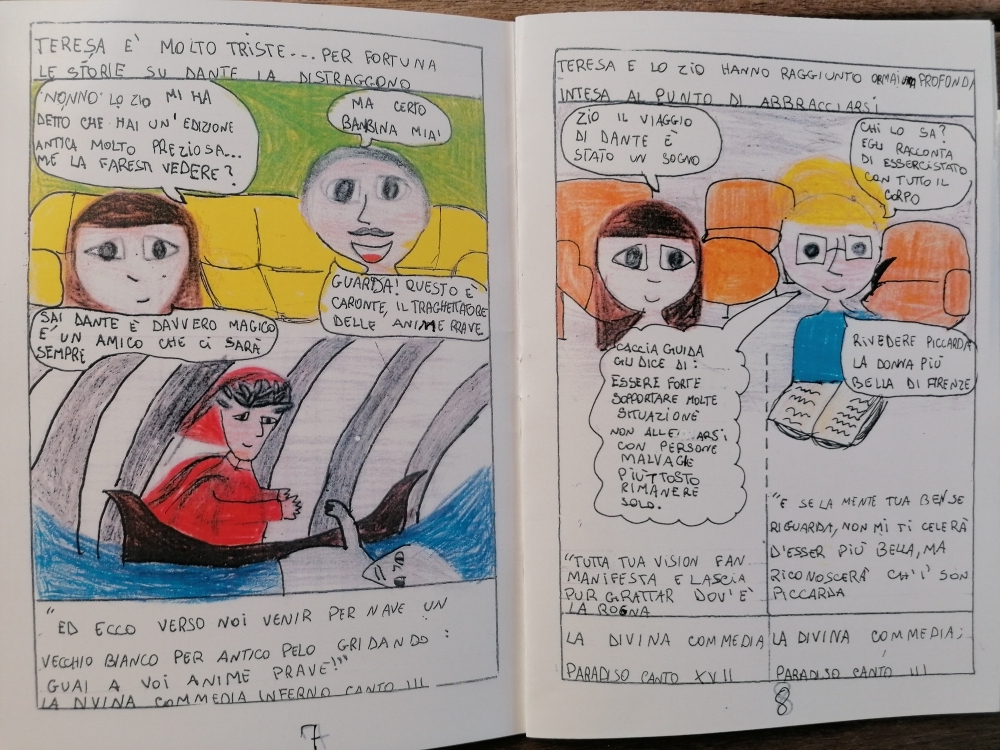 TERESA E' MOLTO TRISTE... PER FORTUNA
LE STORIE SU DANTE LA DISTRAGGONO
NONNO LO ZIO MI HA
DETTO CHE HAI UN'EDIZIONE
ANTICA MOLTO PREZIOSA...
ME LA FARESTI VEDERE?
MA CERTO
BANBINA MIA!
SAI DANTE È DAVVERO MAGICO
E' UN AMICO CHE CI SARÀ
SEMPRE
GUARDA! QUESTO È
CARONTE, IL TRAGHETTATORE
DELLE ANIME PRAVE
"
ED ECCO VERSO NOI VENIR PER NAVE UN
VECCHIO BIANCO PER ANTICO PELO GRIDANDO:
GUAI A VOI ANIME PRAVE!"
LA DIVINA COMMEDIA INFERNO CANTO III
7
TERESA E LO ZIO HANNO RAGGIUNTO ORMAI PROFONDA
INTESA AL PUNTO DI ABBRACCIARSI
ZIO IL VIAGGIO
DI DANTE È
STATO UN SOGNO
CHI LO SA?
EGLI RACCONTA
DI ESSERCI STATO
CON TUTTO IL
CORPO
CACCIA GUIDA
GLI DICE DI:
ESSERE FORTE
SOPPORTARE MOLTE
SITUAZIONE
NON ALLE...ARSI
CON PERSONE
MALVAGE
PIUTTOSTO
RIMANERE
SOLO.
RIVEDERE PICCARDA
LA DONNA PIÙ
BELLA DI FIRENZE
"TUTTA TUA VISION FAN
MANIFESTA E LASCIA
PUR GRATTAR DOV'È
LA ROGNA
"E SE LA MENTE TUA BEN SE
RIGUARDA, NON MI TI CELERÀ
D'ESSER PIÙ BELLA, MA
RICONOSCERÀ CH'I' SON
PICCARDA
LA DIVINA COMMEDIA
PARADISO CANTO XVII
LA DIVINA COMMEDIA;
PARADISO CANTO III
8